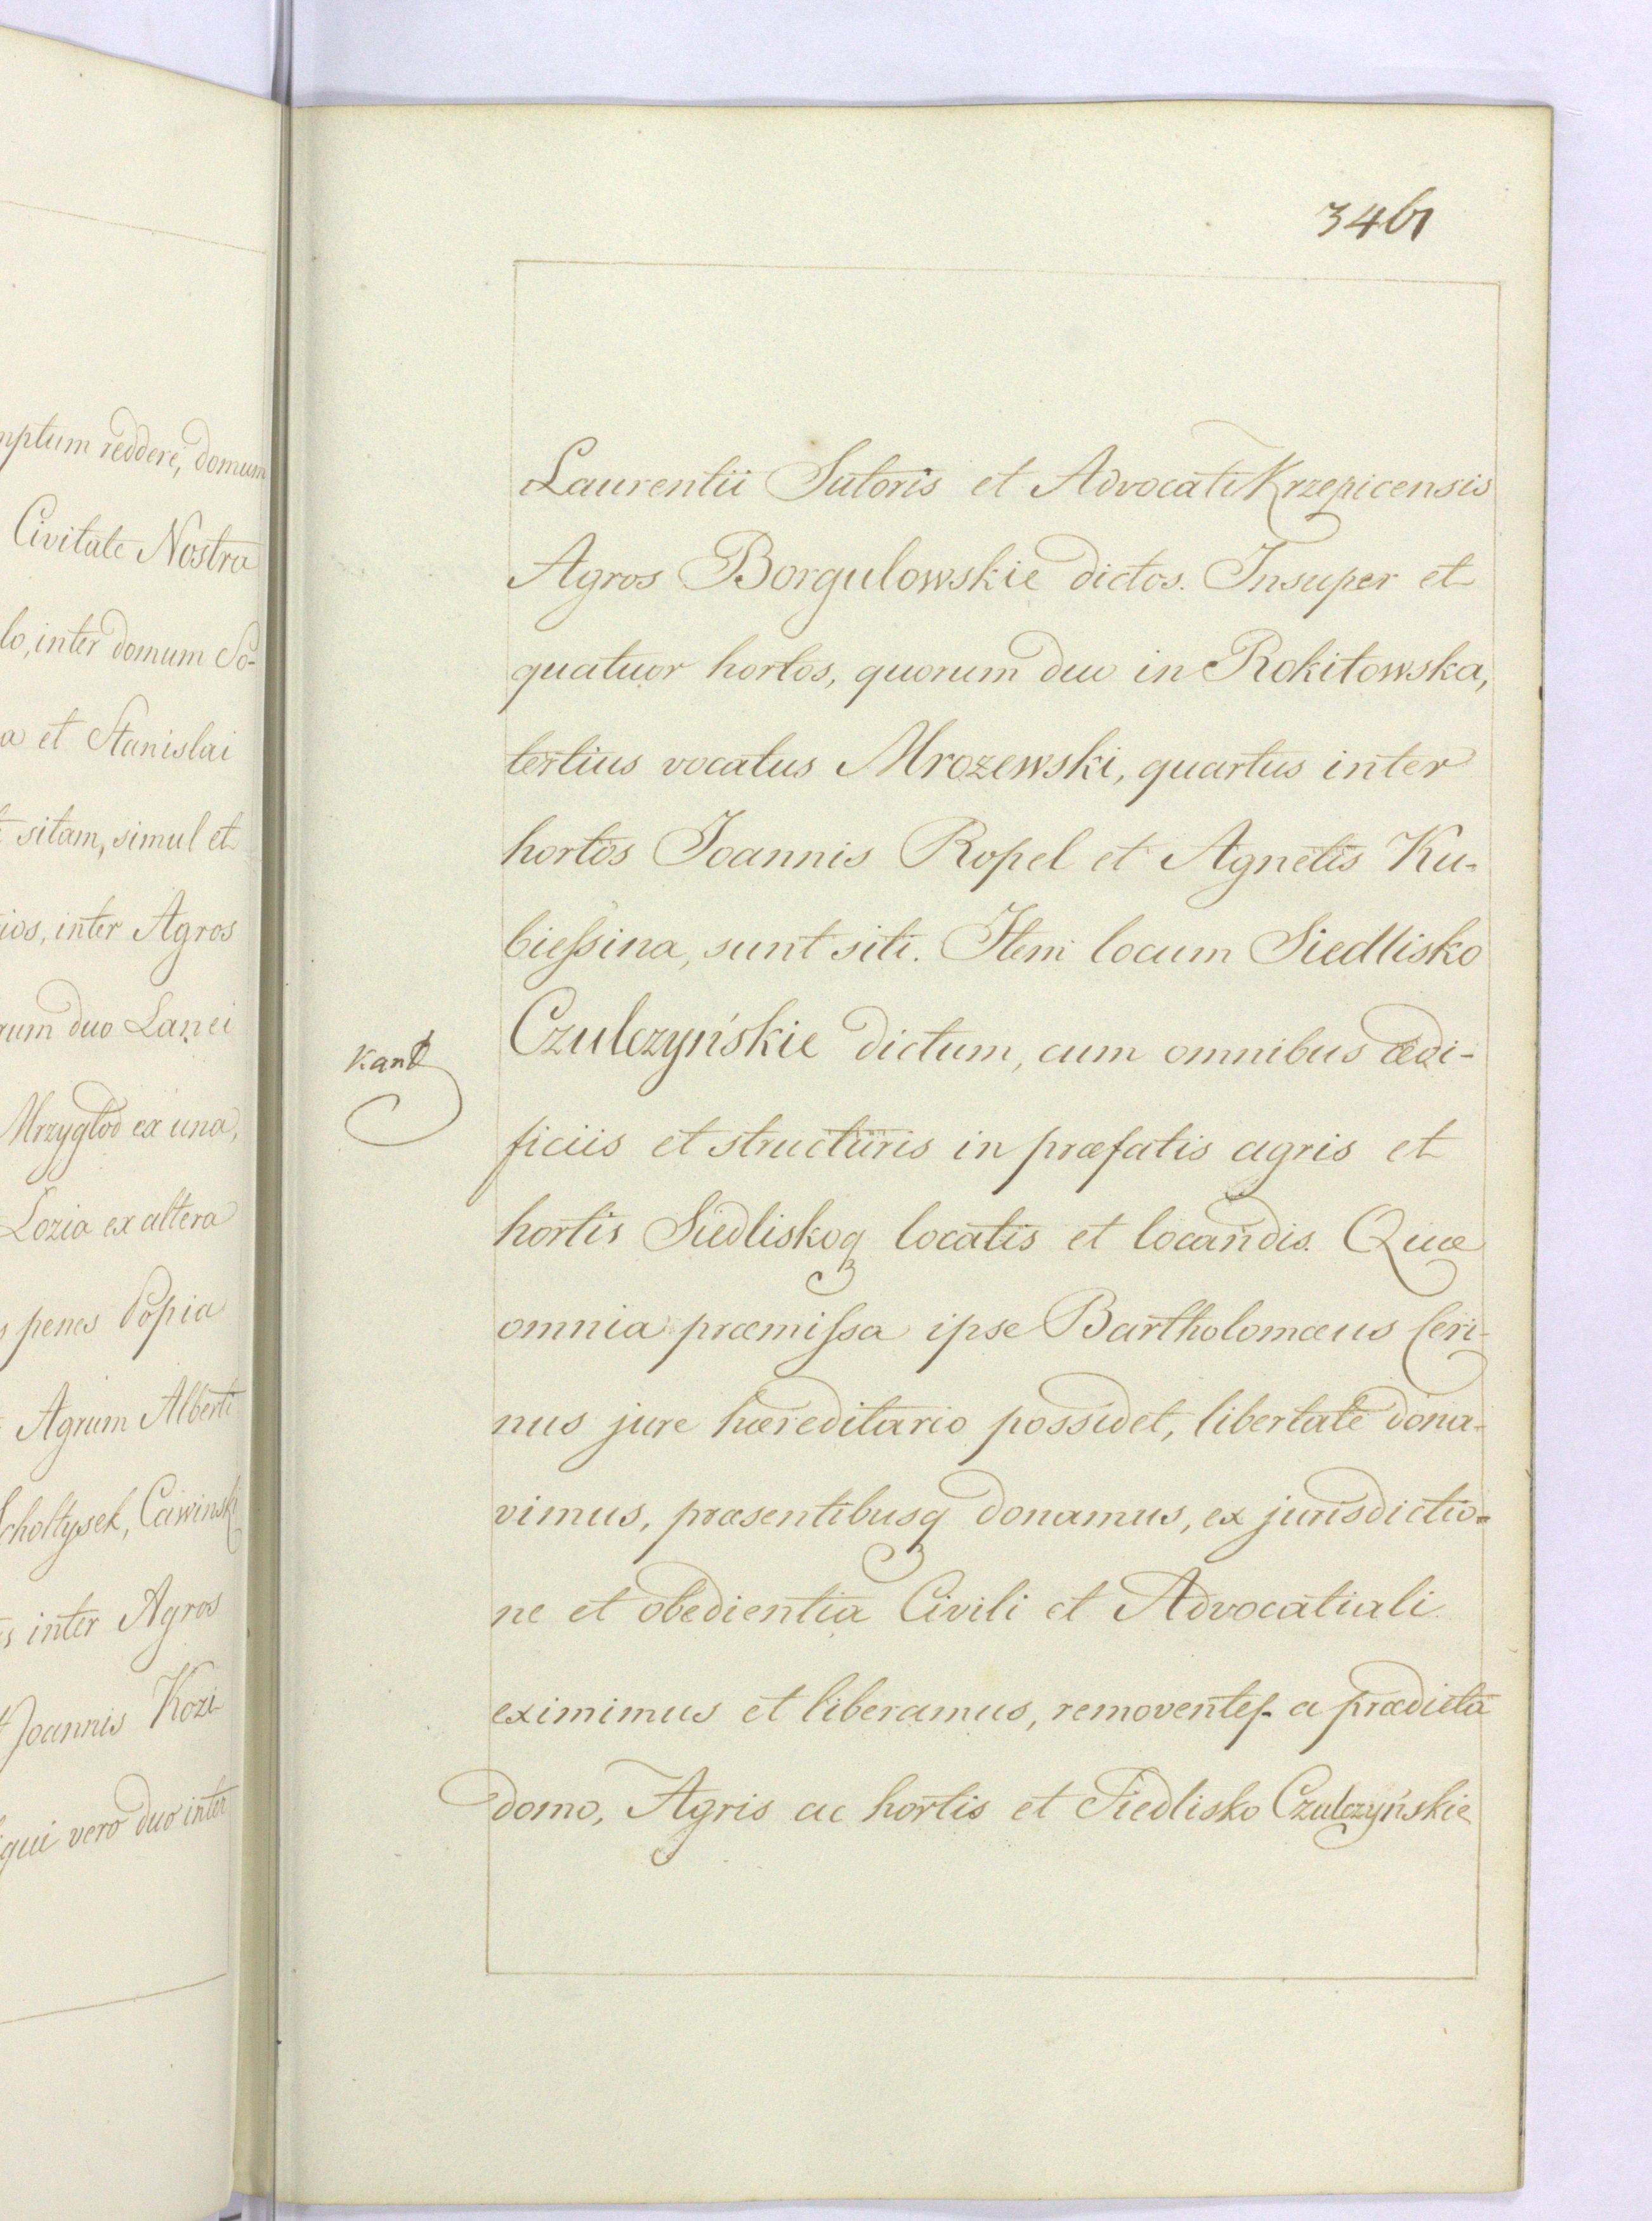 mptum reddere, domum
Civitate Nostra
lo, inter domum So-
a et Stanislai
sitam, simul et
ios, inter Agros
rum duo Lanei
Mrzygłod ex una,
Lozia ex altera
penes Popia
Agrum Alberti
Scholtysek, Cawinski
s inter Agros
Joannis Kozi-
qui vero duo inter
Laurentii Sutoris et Advocati Krzepicensis
Agros Borgulowskie dictos. Insuper et
quatuor hortos, quorum duo in Rokitowska,
tertius vocatus Mrozewski, quartus inter
hortos Joannis Ropel et Agnetis Ku-
bieſsina, sunt siti. Item locum Siedlisko
Kant
Czulczyńskie dictum, cum omnibus ædi-
ficiis et structuris in præfatis agris et
hortis Siedliskoq locatis et locandis. Quæ
omnia præmiſsa ipse Bartholomæus Ceri-
nus jure hæreditario possidet, libertate dona-
vimus, præsentibusq donamus, ex jurisdictio-
ne et obedientia Civili et Advocatiali
eximimus et liberamus, removentes a prædicta
domo, Agris ac hortis et Siedlisko Czulczyńskie